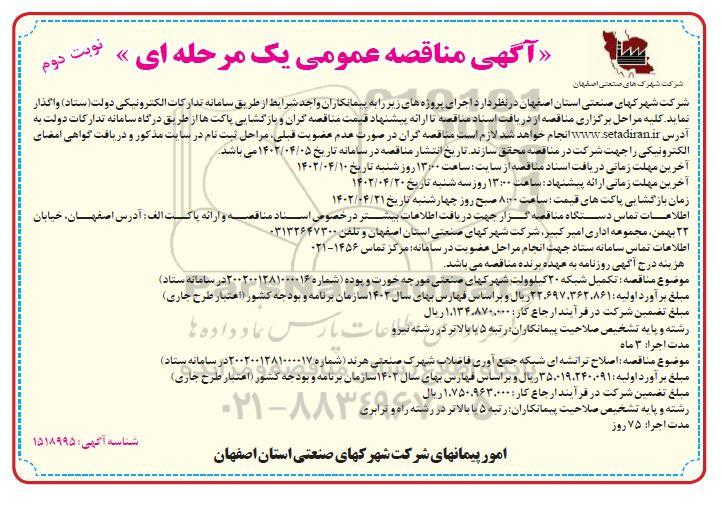 «آگهی مناقصه عمومی یک مرحله ای»
نوبت دوم
شرکت شهرک های صنعتی اصفهان
شرکت شهرکهای صنعتی استان اصفهان در نظر دارد اجرای پروژه های زیر را به پیمانکاران واجد شرایط از طریق سامانه تدارکات الکترونیکی دولت (ستاد) واگذار
نماید. کلیه مراحل برگزاری مناقصه از دریافت اسناد مناقصه تا ارائه پیشنهاد قیمت مناقصه گران و بازگشایی پاکت ها از طریق درگاه سامانه تدارکات دولت به
آدرس www.setadiran.ir انجام خواهد شد لازم است مناقصه گران در صورت عدم عضویت قبلی، مراحل ثبت نام در سایت مذکور و دریافت گواهی امضای
الکترونیکی را جهت شرکت در مناقصه محقق سازند. تاریخ انتشار مناقصه در سامانه تاریخ ۱۴۰۲/۰۴/۰۵ می باشد.
آخرین مهلت زمانی دریافت اسناد مناقصه از سایت: ساعت ۱۳:۰۰ روز شنبه تاریخ ۱۴۰۲/۰۴/۱۰
آخرین مهلت زمانی ارائه پیشنهاد: ساعت ۱۳:۰۰ روز سه شنبه تاریخ ۱۴۰۲/۰۴/۲۰
زمان بازگشایی پاکت های قیمت: ساعت ۸:۰۰ صبح روز چهارشنبه تاریخ ۱۴۰۲/۰۴/۲۱
اطلاعات تماس دستگاه مناقصه گزار جهت دریافت اطلاعات بیشتر در خصوص اسناد مناقصه و ارائه پاکت الف: آدرس اصفهان، خیابان
۲۲ بهمن، مجموعه اداری امیر کبیر، شرکت شهرکهای صنعتی استان اصفهان و تلفن ۰۳۱۳۲۶۴۷۳۰۰
اطلاعات تماس سامانه ستاد جهت انجام مراحل عضویت در سامانه: مرکز تماس ۱۴۵۶-۰۲۱
هزینه درج آگهی روزنامه به عهده برنده مناقصه می باشد.
موضوع مناقصه: تکمیل شبکه ۲۰ کیلوولت شهرکهای صنعتی مورچه خورت و پوده (شماره ۲۰۰۲۰۰۱۲۸۱۰۰۰۰۱۶ در سامانه ستاد)
مبلغ برآورد اولیه: ۲۲.۶۹۷.۳۶۲.۸۶۱ ریال و بر اساس فهارس بهای سال ۱۴۰۲ سازمان برنامه و بودجه کشور (اعتبار طرح جاری)
مبلغ تضمین شرکت در فرآیند ارجاع کار: ۱.۱۳۴.۸۷۰.۰۰۰ ریال
رشته و پایه تشخیص صلاحیت پیمانکاران: رتبه ۵ یا بالاتر در رشته نیرو
مدت اجرا: ۳ ماه
موضوع مناقصه: اصلاح ترانشه ای شبکه جمع آوری فاضلاب شهرک صنعتی هرند (شماره ۲۰۰۲۰۰۱۲۸۱۰۰۰۰۱۷ در سامانه ستاد)
مبلغ برآورد اولیه: ۳۵.۰۱۹.۲۴۰.۰۹۱ ریال و بر اساس فهارس بهای سال ۱۴۰۲ سازمان برنامه و بودجه کشور (اعتبار طرح جاری)
مبلغ تضمین شرکت در فرآیند ارجاع کار: ۱.۷۵۰.۹۶۳.۰۰۰ ریال
رشته و پایه تشخیص صلاحیت پیمانکاران: رتبه ۵ یا بالاتر در رشته راه و ترابری
مدت اجرا: ۷۵ روز
شناسه آگهی: ۱۵۱۸۹۹۵
امور پیمانهای شرکت شهرکهای صنعتی استان اصفهان
ParsNamadData
۰۲۱-۸۸۳۴۹۶۷۰-۵